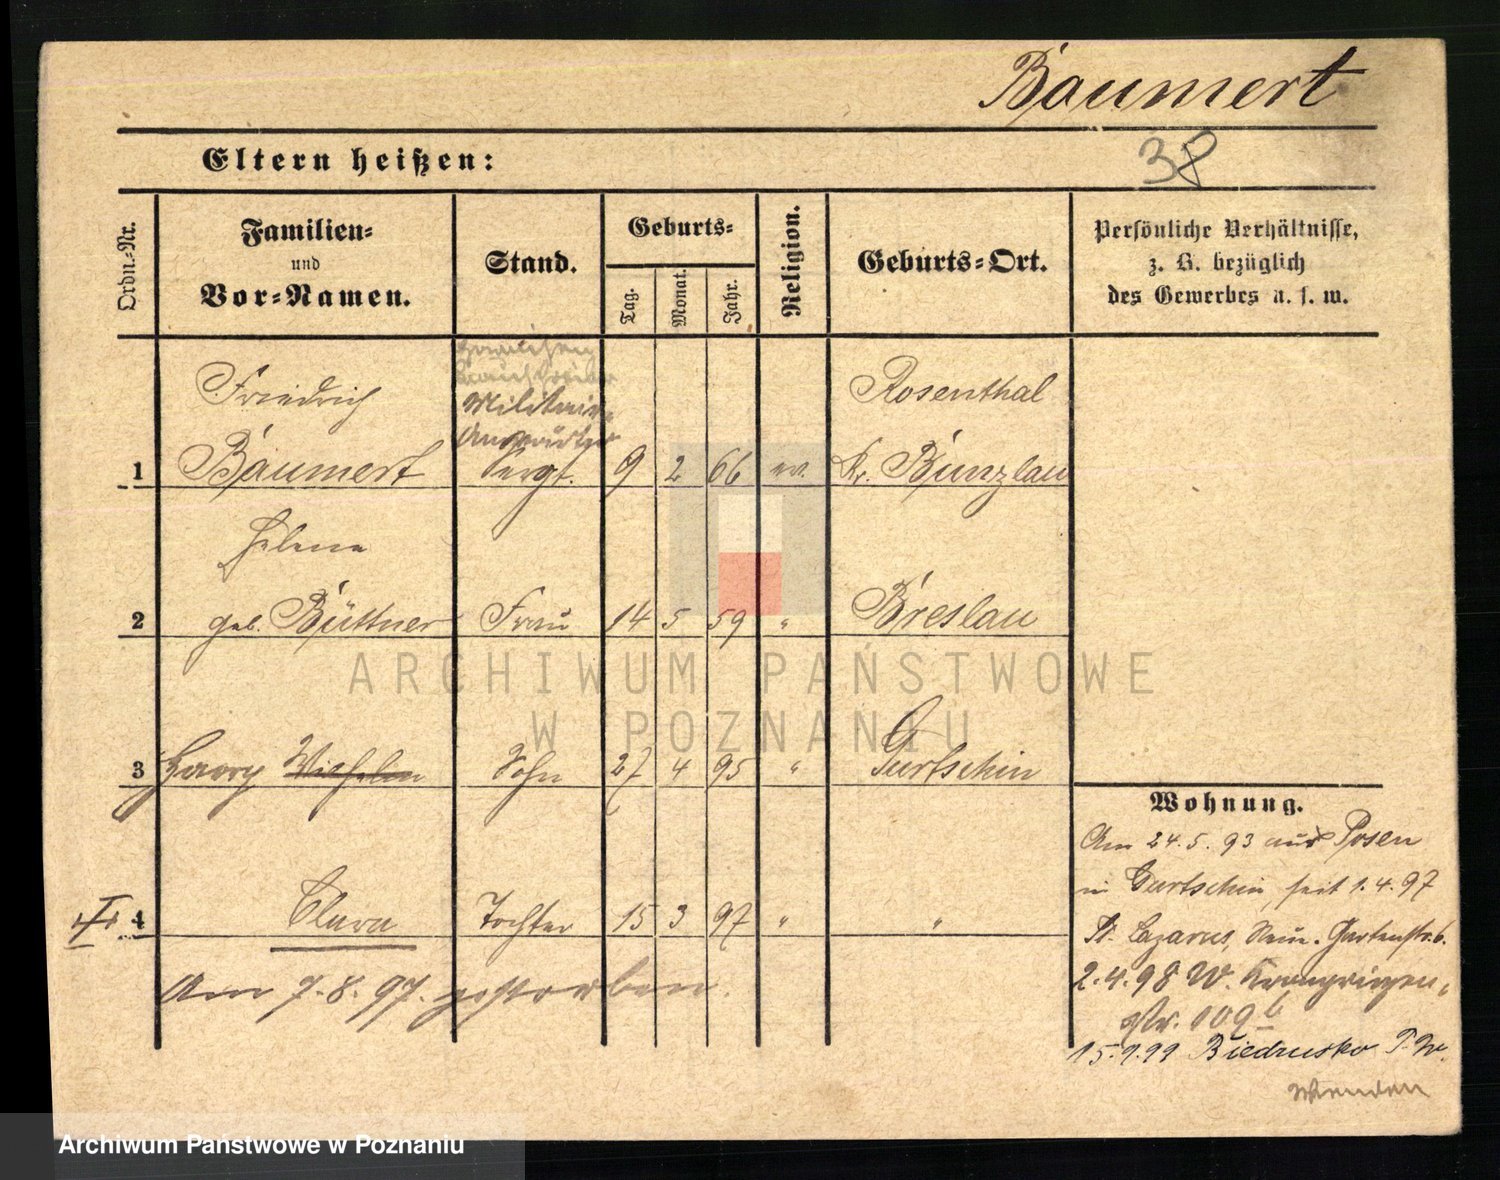 Baumert
38
Eltern heißen:
Ordn.-Nr.
Familien-
und
Vor-Namen.
Stand.
Geburts-
Tag.
Monat.
Jahr.
Religion.
Geburts-Ort.
Persönliche Verhältnisse,
z. B. bezüglich
des Gewerbes u. s. w.
Militair
Anwärter
Friedrich Rosenthal
1 Baumert Sergt. 9 2 66 ev. Kr. Bunzlau
Helene
2 geb. Büttner Frau 14 5 59 " Breslau
3 Georg Wilhelm Sohn 27 4 95 " Gurtschin
4 Clara Tochter 15 3 97 " "
Am 7.8.97. gestorben.
Wohnung.
Am 24.5.93 aus Posen
in Gurtschin, seit 1.4.97
St. Lazarus, Neue Gartenstr. 6.
2.4.98 W. Kronprinzen-
Str. 109 b
15.9.99 Biedrusko P.
wenden
ARCHIWUM PAŃSTWOWE
W POZNANIU
Archiwum Państwowe w Poznaniu